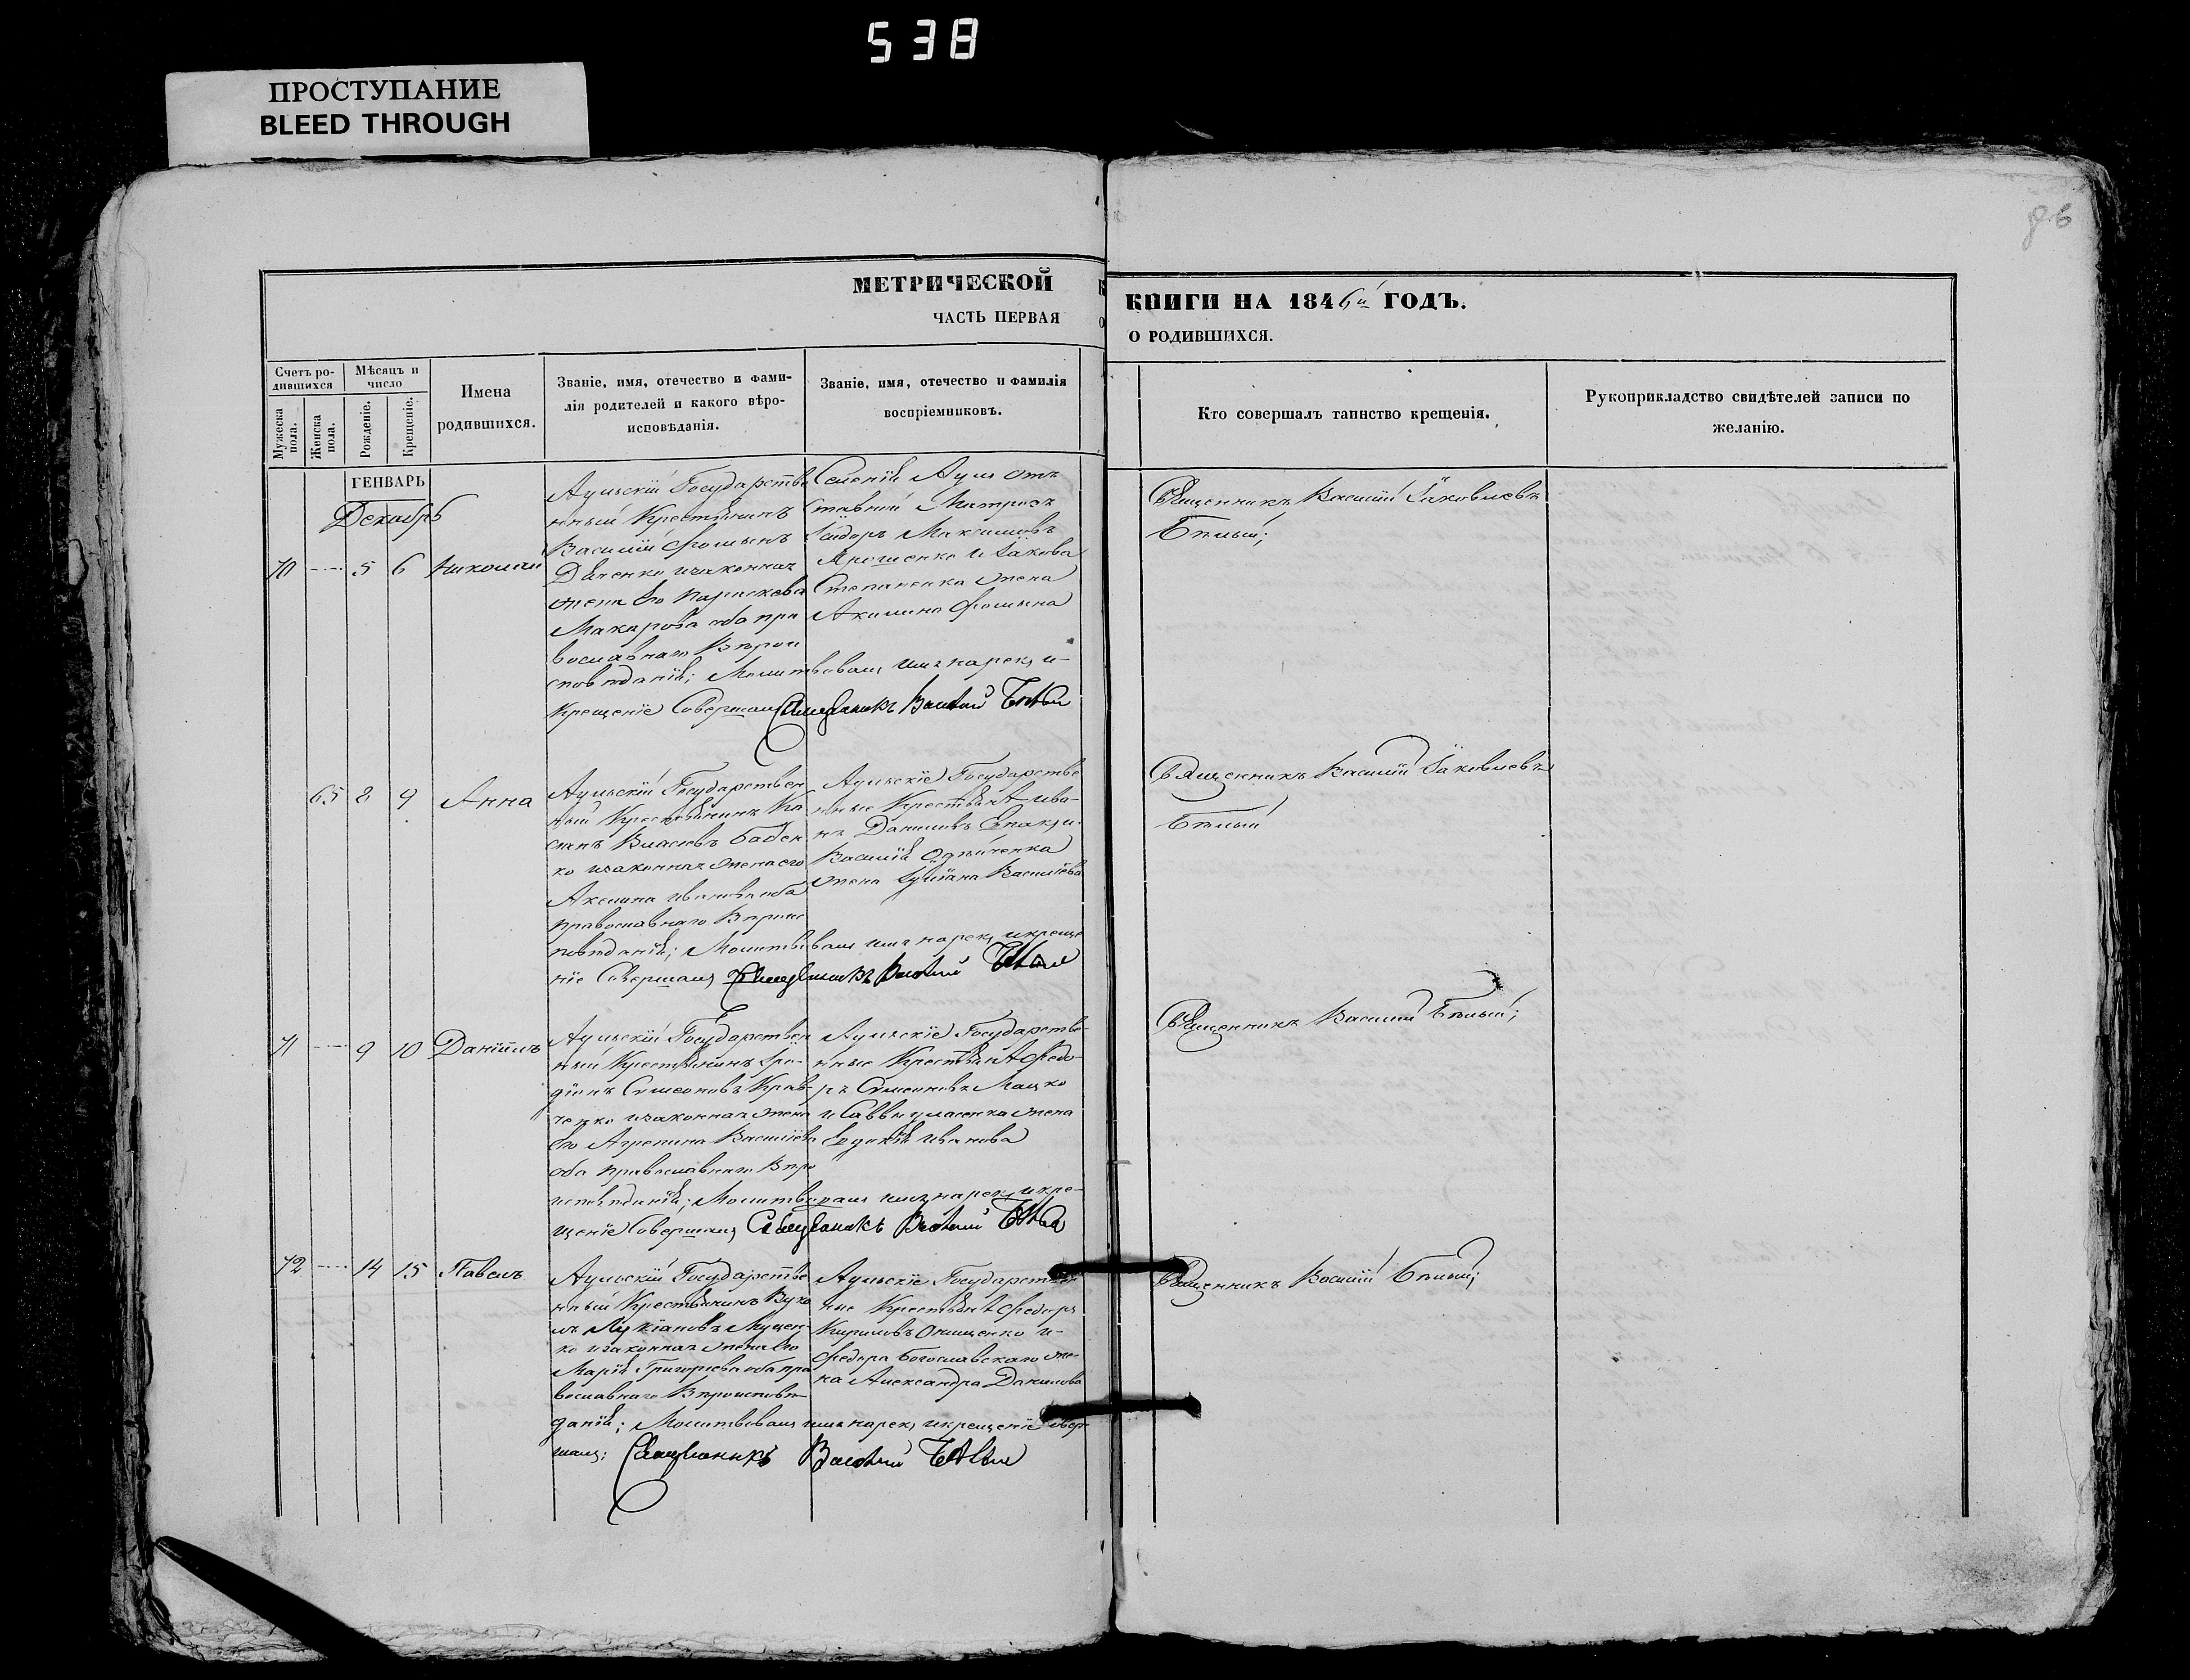 538
ПРОСТУПАНИЕ
BLEED THROUGH
МЕТРИЧЕСКОЙ
КНИГИ НА 1846й ГОДЪ.
ЧАСТЬ ПЕРВАЯ
О РОДИВШИХСЯ.
Счетъ ро-
дившихся
Мужеска пола.
Женска пола.
Мѣсяцъ и
число
Рожденіе.
Крещеніе.
Имена
родившихся.
Званіе, имя, отечество и фами-
лія родителей и какого вѣро-
исповѣданія.
Званіе, имя, отечество и фамилія
воспріемниковъ.
Кто совершалъ таинство крещенія.
Рукоприкладство свидѣтелей записи по
желанію.
ГЕНВАРЬ
Декабрь
70 5 6 Николай
Аульскій Государстве
нный Крестьянинъ
Василій Фоминъ
Дяченко и законная
жена его Параскева
Макарова оба пра
вославнаго Вѣрои
сповѣданія; Молитвовалъ имя нарекъ и
Крещеніе Совершалъ Священникъ Василий Бѣлый
Селенія Аулъ От
ставный Матрозъ
Сидоръ Максимовъ
Ярошенко и Іакова
Степаненка жена
Акилина Фомина
Священникъ Василій Іаковлевъ
Бѣлый;
65 8 9 Анна
Аульскій Государствен
ный Крестьянинъ
Власовъ Бабен
ко и законная жена его
Акилина Иванова оба
православнаго Вѣроис
повѣданія; Молитвовалъ имя нарекъ и креще
ніе Совершалъ Священникъ Василий Бѣлый
Аульскіе Государстве
нные Крестьяне Ива
нъ Даниловъ и
Василія
жена Іуліана Василіева
Священникъ Василій Іаковлевъ
Бѣлый
71 9 10 Даніилъ
Аульскій Государствен
ный Крестьянинъ Іро
діонъ Симеоновъ Крав
ченко и законная жена
его Агрепина Василіева
оба православнаго Вѣро
исповѣданія; Молитвовалъ имя нарекъ и кре
щеніе Совершалъ Священникъ Василий Бѣлый
Аульскіе Государстве
нные Крестьяне Федо
ръ Симеоновъ Мацко
и Саввы Уласенка жена
Евдокія Иванова
Священникъ Василий Бѣлый;
72 14 15 Павелъ
Аульскій Государстве
нный Крестьянинъ Вуко
лъ Лукіановъ Луцен
ко и законная жена его
Марія Григорьева оба пра
вославнаго Вѣроисповѣ
данія; Молитвовалъ имя нарекъ и крещеніе совер
шалъ; Священникъ Василий Бѣлый
Аульскіе Государствен
ные Крестьяне Федоръ
Кириловъ Онищенко и
Федора Богославскаго же
на Александра Данилова
Священникъ Василій Бѣлый;